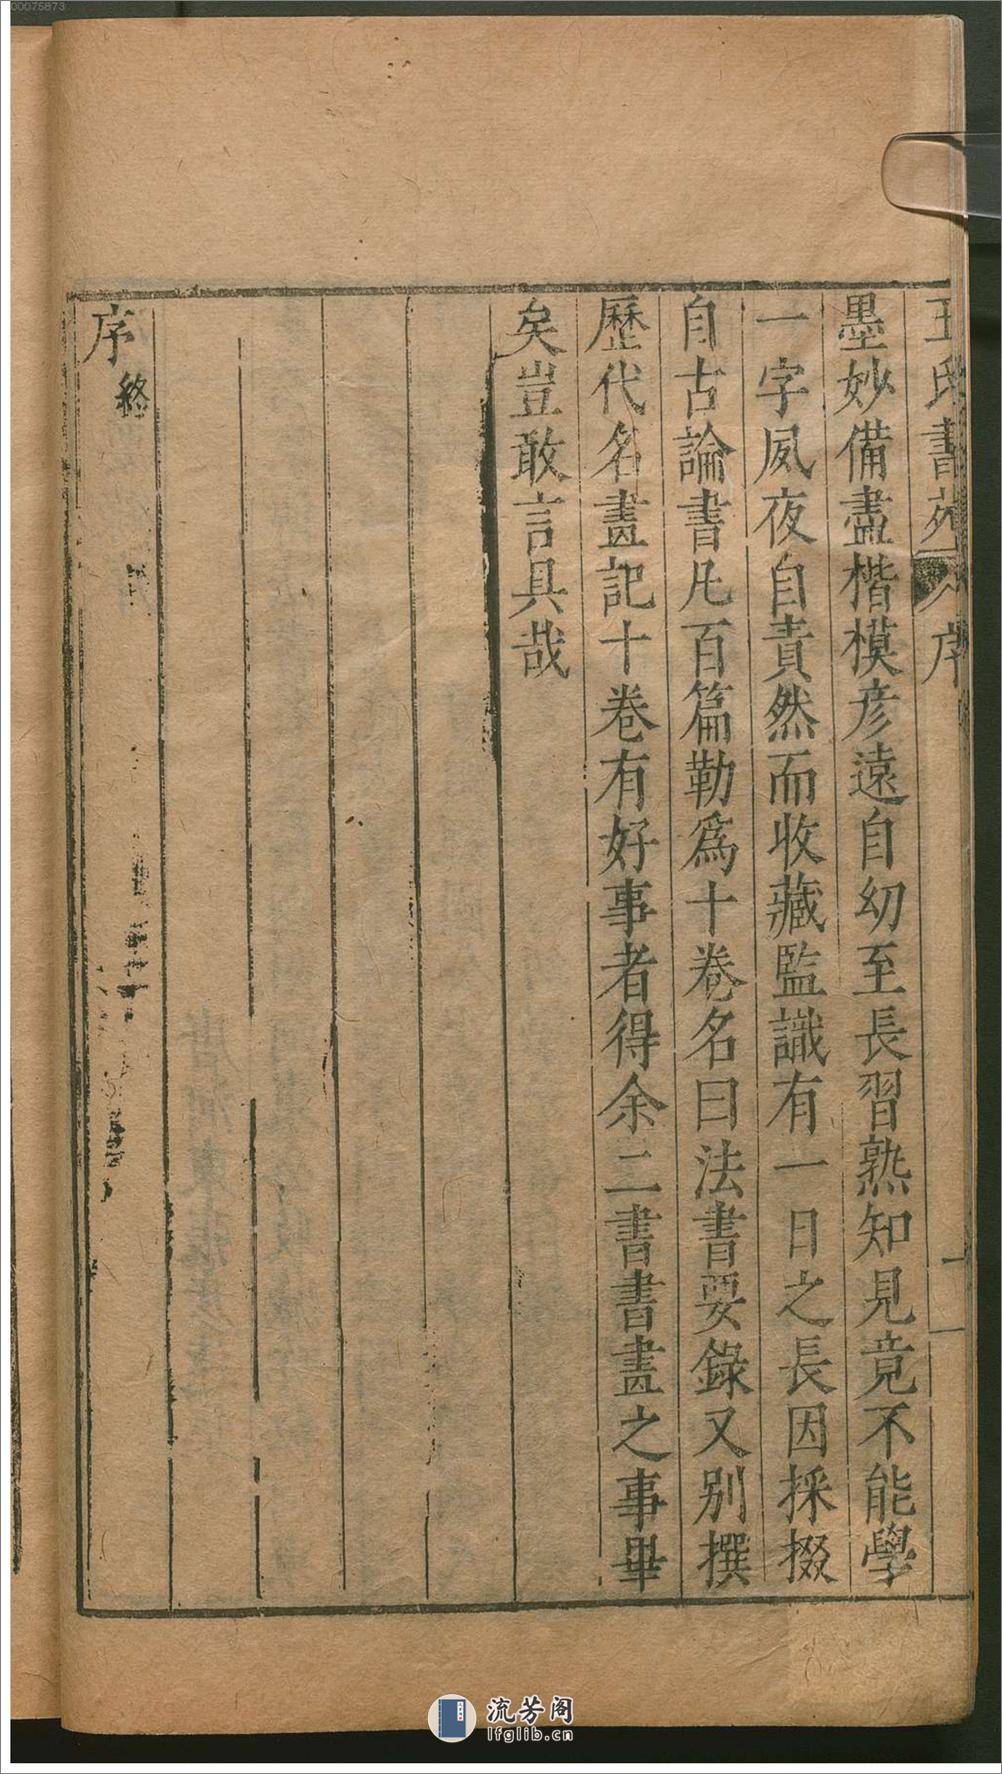 王氏書苑 序 二
墨妙備盡楷模彦遠自幼至長習熟知見竟不能學
一字夙夜自責然而收藏監識有一日之長因採掇
自古論書凡百篇勒爲十卷名曰法書要錄又別撰
歷代名畫記十卷有好事者得余二書書畫之事畢
矣豈敢言具哉
序終
00075873
流芳阁
lfglib.cn